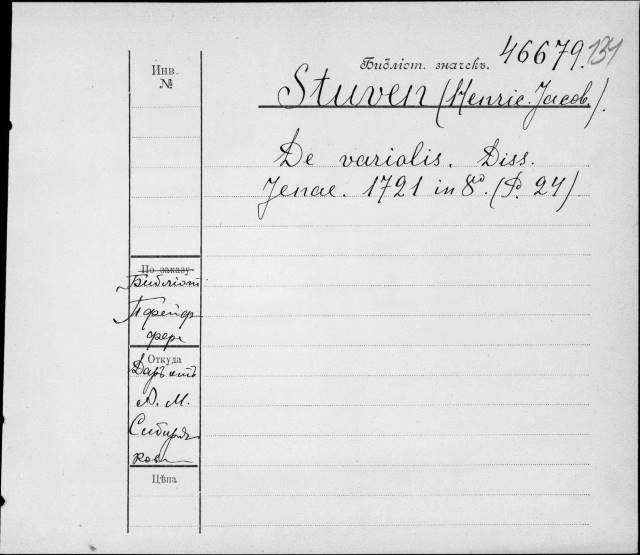 Инв.
№
Библіот. значекъ. 46679. 134
Stuven (Henric. Jacob.).
De variolis. Diss.
Jenae. 1721 in 8º. (P. 24)
По заказу
Библіот
Пфейф
фера
Откуда
Даръ отъ
А. М.
Сибиря
кова
Цѣна